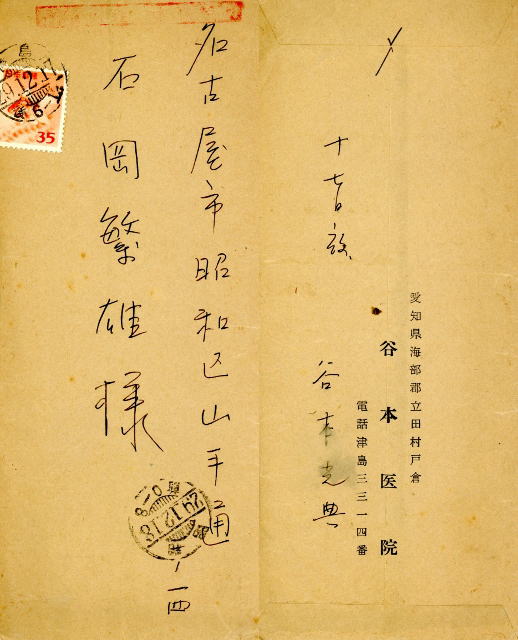 名古屋市昭和区山手通
石岡繁雄様
35
島
29.12.17
29.12.18
十七日夜
谷本光典
愛知県海部郡立田村戸倉
谷本医院
電話津島三三一四番